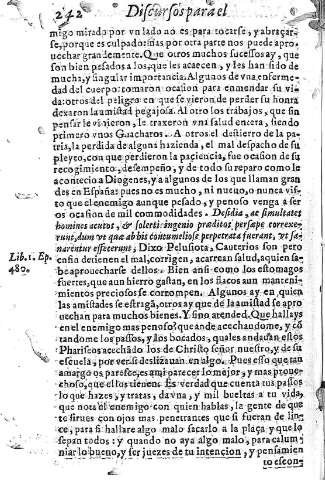 242 Discursos para el
migo mirado por vn lado no es para tocarse, y abraçar-
se, porque es culpado: mas por otra parte nos puede apro-
uechar grandemente. Que otros muchos sucessos ay, que
son bien pesados a los, que les acaecen, y les han sido de
mucha, y singular importancia. Algunos de vna enferme-
dad del cuerpo: tomaron ocasion para enmendar su vi-
da: otros del peligro en que se vieron de perder su honra
dexaron la amistad pegajosa. Al otro los trabajos, que sin
pensar le vinieron, le traxeron vna salud entera, siendo
primero vnos Guacharos. A otros el destierro de la pa-
tria, la perdida de alguna hazienda, el mal despacho de su
pleyto, con que perdieron la paciencia, fue ocasion de su
recogimiento, desempeño, y de todo su reparo como le
acontecio a Diogenes, y a algunos de los que llaman gran
des en España: pues no es mucho, ni nueuo, o nunca vis-
to que el enemigo aunque pesado, y penoso venga a ser
os ocasion de mil commodidades. Desdia, ac simultates
homines acutos, & solerti ingenio præditos, persæpe correxe-
runt, dum vt quæ ab bit contumeliosè perpetrata fuerant, vt sa-
narentur effecerunt, Dixo Pelusiota, Cauterios son pero
Lib. 1. Ep. enfin detienen el mal, corrigen, acarrean salud, aquien sa-
480. be aprouecharse dellos. Bien ansi como los estomagos
fuertes, que aun hierro gastan, en los flacos aun manteni-
mientos preciosos se corrompen. Algunos ay en quien
las amistades se estragã, otros ay que de la amistad se apro
uechan para muchos bienes. Y sino atended. Que hallays
en el enemigo mas penoso? que ande acechandome, y cõ
tandome los passos, y los bocados, quales andauan estos
Phariseos acechãdo los de Christo señor nuestro, y de su
escuela, por ver si deslizauan en algo. Pues esso que tan
amargo os paresce, es a mi parecer lo mejor, y mas proue-
choso, que ellos tienen. Es verdad que cuenta tus passos
lo que hazes, y tratas, da vna, y mil bueltas a tu vida,
que nota el enemigo con quien hablas, la gente de que
te sirues con ojos mas penetrantes que si fueran de lin-
ce, para si hallare algo malo sacarlo a la plaça y que lo
sepan todos: y quando no aya algo malo, para calum
niar lo bueno, y ser juezes de tu intencion, y pensamien
to escon-